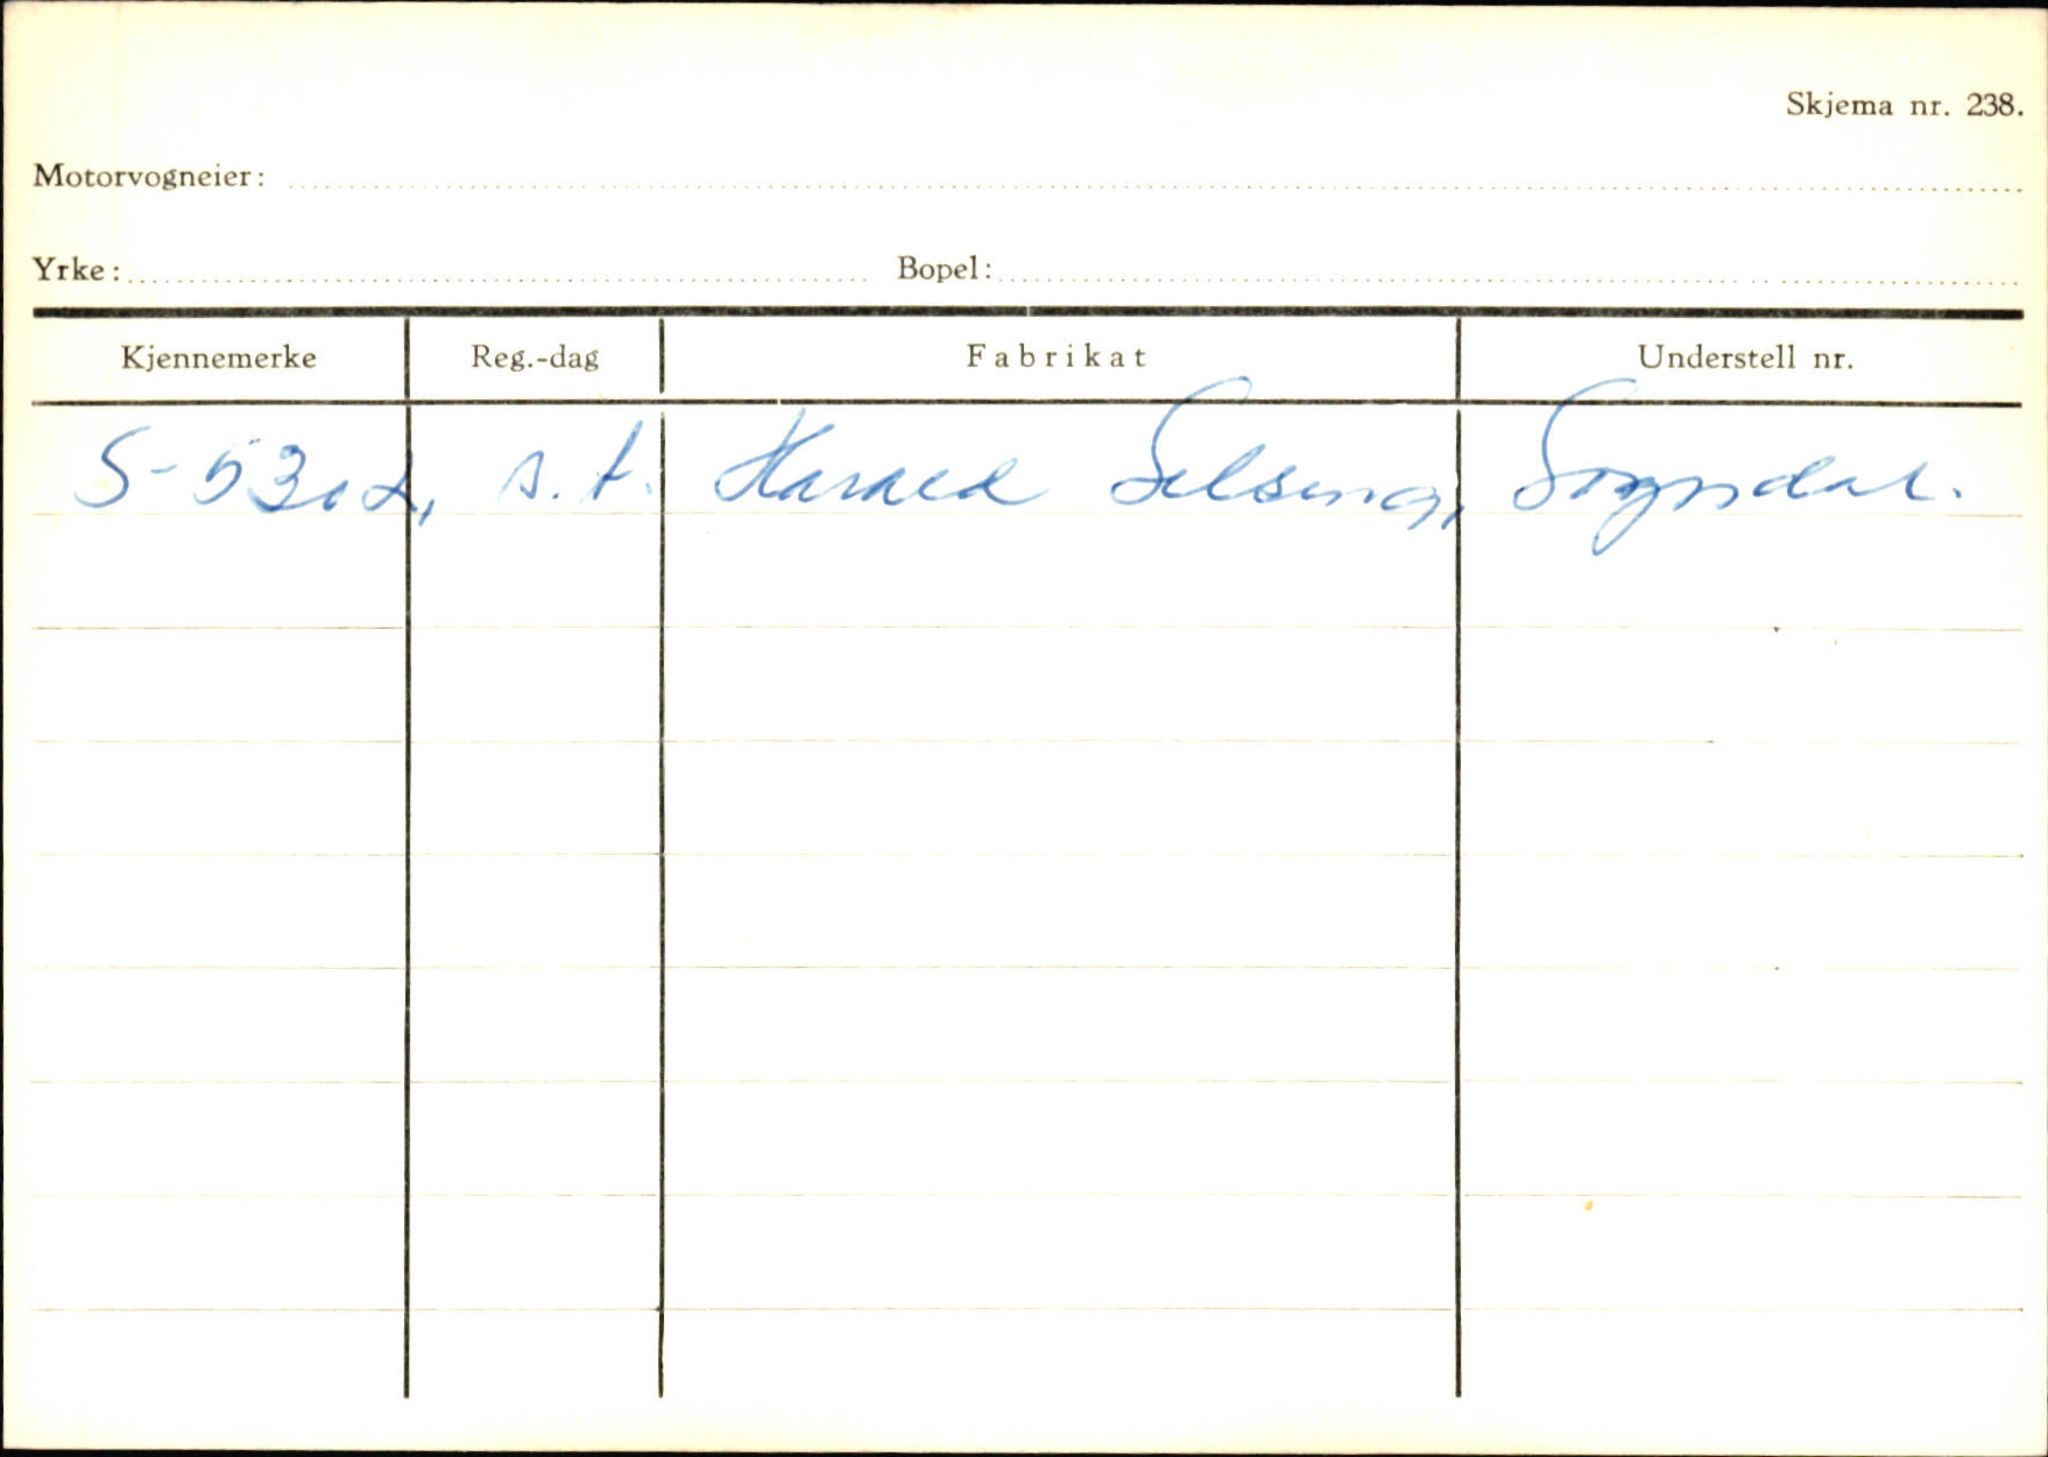 Skjema nr. 238.
Motorvogneier:
Yrke: Bopel:
Kjennemerke Reg.-dag Fabrikat Understell nr.
S-5302, s.t. Harald Selseng, Sogndal.